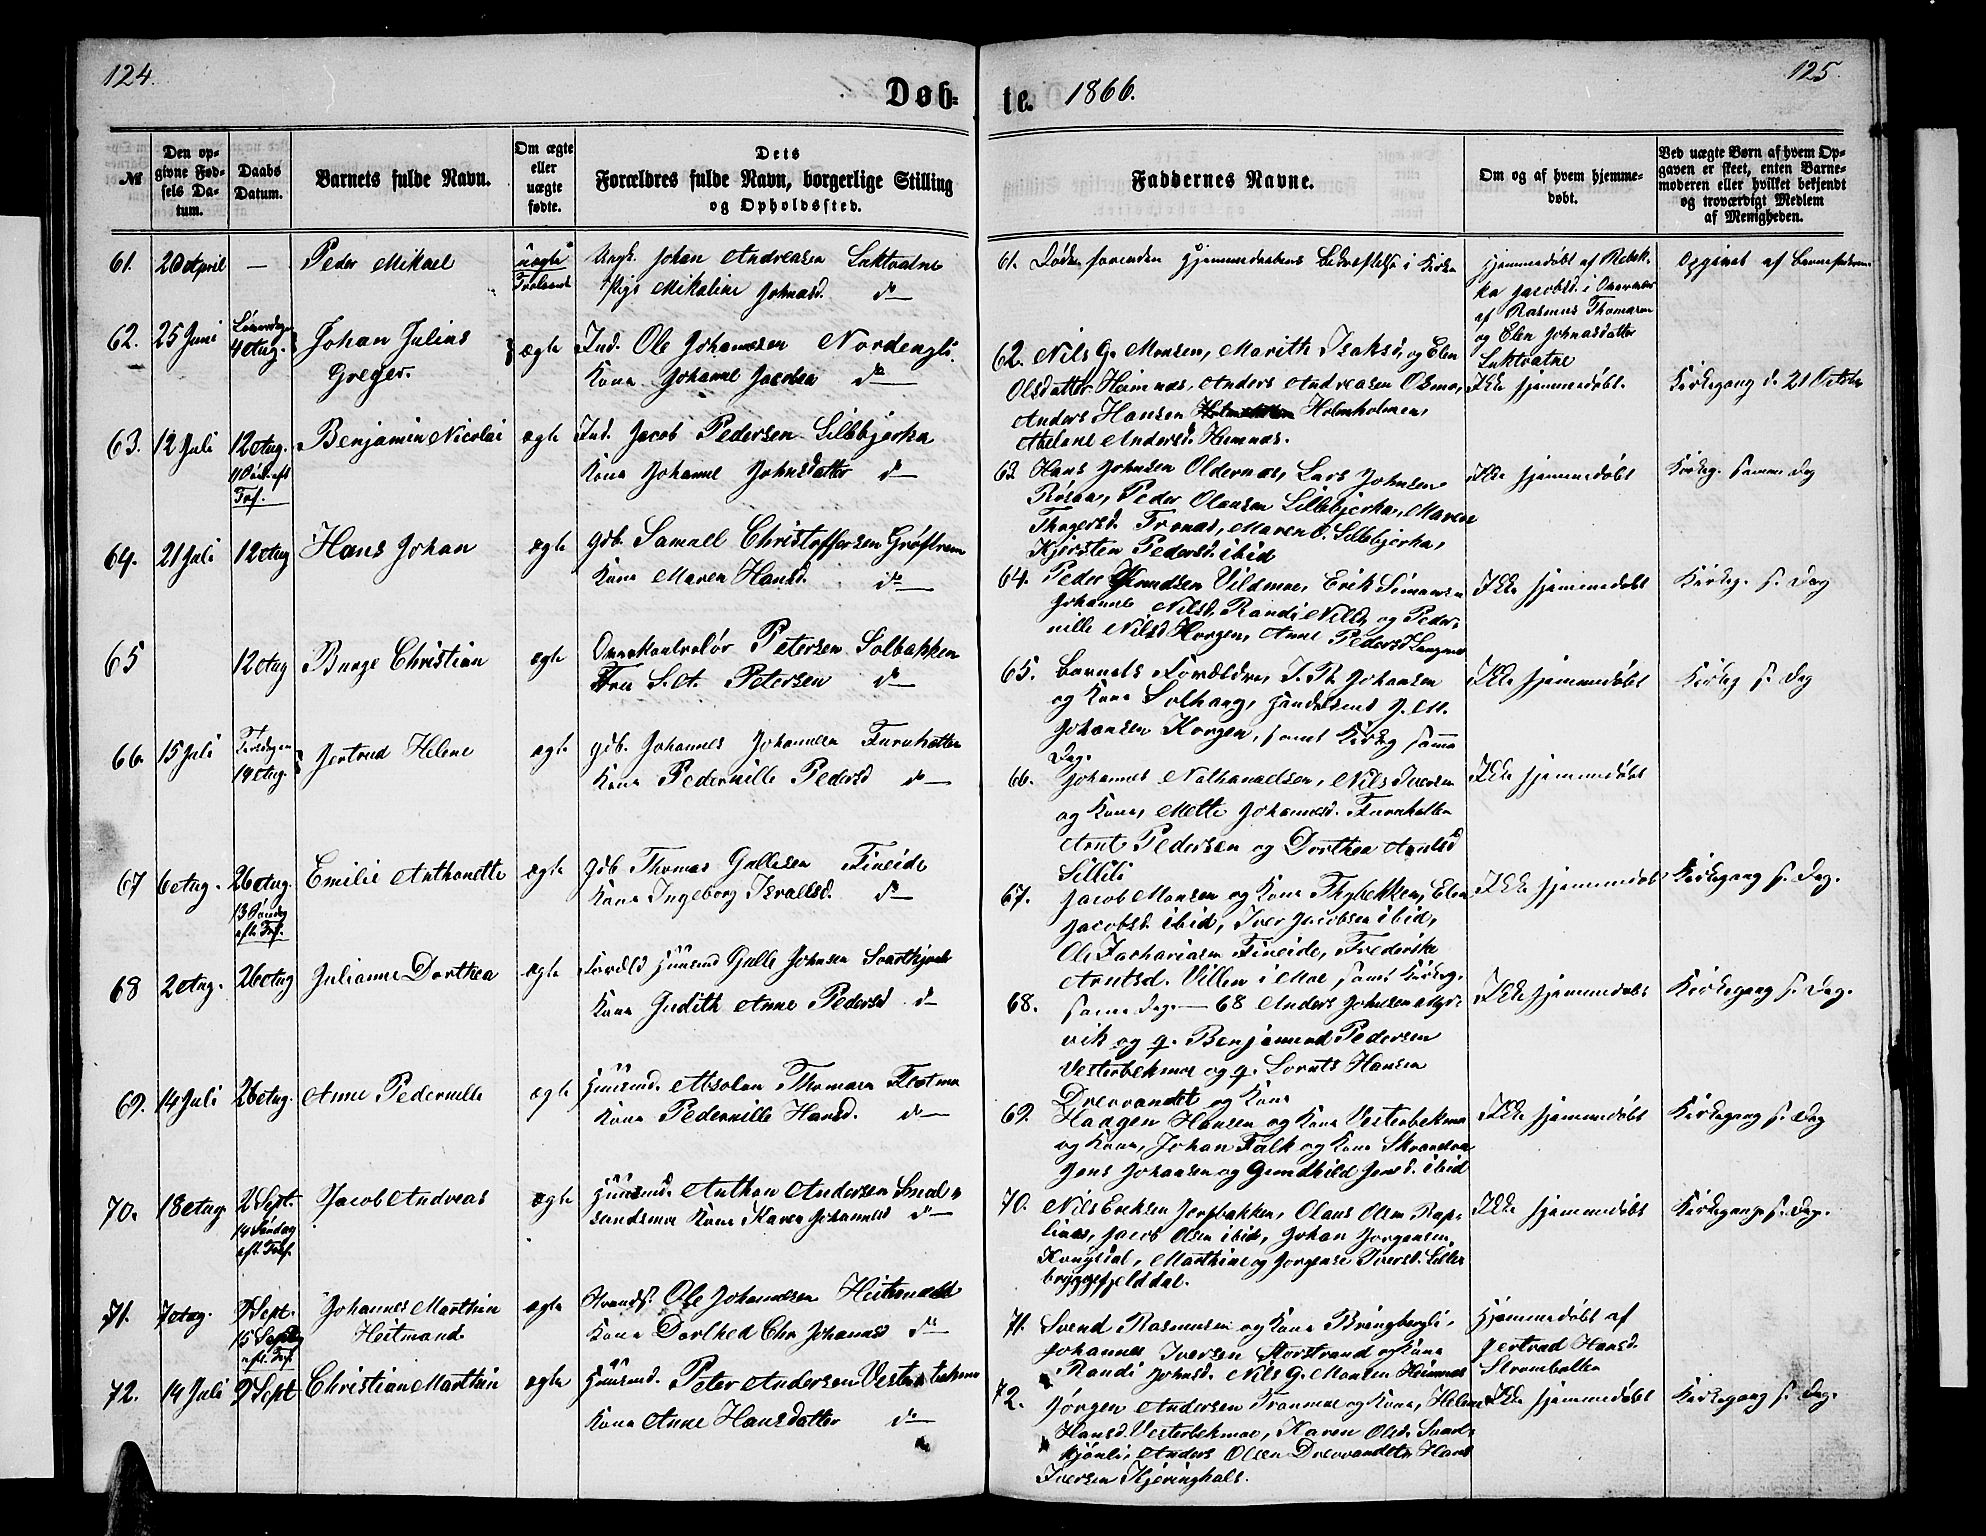 124.
Døb-
№
Den op-
givne Fød-
sels Da-
tum.
Daabs
Datum.
Barnets fulde Navn.
Om ægte
eller
uægte
fødte.
Dets
Forældres fulde Navn, borgerlige Stilling
og Opholdssted.
61. 20 April — Peder Mikael uægte Ungk. Johan Andreasen
Pige Mikaline Johnsd. do
62. 25 Juni Løverdagen
4 Aug. Johan Julius
Greger. ægte Ind. Ole Johannesen Nordengli.
Kone Johanne Jacobsd do
63. 12 Juli 12 Aug. Benjamin Nicolai ægte Ind. Jacob Pedersen Lillebjerka
Trf. Kone Johanne Johnsdatter do
64. 21 Juli 12 Aug Hans Johan ægte Gdb. Samuel Christoffersen Grøftrem
Kone Maren Hansd. do
65 12 Aug Bunge Christian ægte Petersen Solbakken
Fru S. A. Petersen do
66. 15 Juli Tirsdagen
14 Aug. Jertrud Helene ægte Gdb. Johannes Johannesen Furuhatten
Kone Pedernille Pedersd do
67 6 Aug. 26 Aug.
13 Søndag
eft. Trf. Emilie Anthonette ægte Gdb Thomas Gullesen Fineide
Kone Ingeborg Israelsd. do
68 2 Aug. 26 Aug Julianne Dorthea ægte Huusmd Gulle Johnsen
Kone Judith Anne Pedersd do
69. 14 Juli 26 Aug. Anne Pedernille ægte Huusmd. Absolon Thomasen
Kone Pedernille Hansd. do
70. 18 Aug. 2 Sept.
14 Søndag
eft. Trf. Jacob Andreas ægte Huusmd. Anthon Andersen Smal-
sundmoe Kone Karen Johannesd do
71. 7 Aug. 9 Sept.
15 Søndag
eft. Trf. Johannes Marthin
Heitmand. ægte Strands. Ole Johannesen
Kone Dorthea Chr Johannsd do
72. 14 Juli 9 Sept Christian Marthin ægte Huusmd. Peter Andersen
Kone Anne Hansdatter do
te. 1866.
125.
Faddernes Navne.
Om og af hvem hjemme-
døbt.
Ved uægte Børn af hvem Op-
gaven er skeet, enten Barne-
moderen eller hvilket bekjendt
og troværdigt Medlem
af Menigheden.
61. Døde forinden Hjemmedaabens Bekræftelse i Kirken
Hjemmedøbt af Rebek-
ka Jacobsd. i
af Rasmus Thomasen
og Elen Johnasdatter
Opgivet af Barnefaderen
62. Nils G. Monsen, Marith Isaksd, og Elen
Olsdatter Heimnes, Anders Andreasen
Anders Hansen Holmholmen,
Abelone Andersd. Hemnes.
Ikke hjemmedøbt. Kirkegang d. 21 October
63 Hans Johnsen Oldernæs, Lars Johnsen
Røsaa, Peder Olausen Lillebjerka, Maren
Maren P. Lillebjerka,
Kjersten Pedersd. ibid
Ikke hjemmedøbt Kirkeg. samme Dag
64. Peder Knudsen Vildmoe, Erik Simonsen
Johanne Nilsd. Randi Nilsd. og Peder-
nille Nilsd Korgen, Anne Pedersd
Ikke hjemmedøbt Kirkeg. s. Dag
65. Barnets Forældre, I. R. Johansen
og Kone Solhaug, Handelsmd J. M.
Johansen Korgen, samt Kirkeg samme
Dag.
Ikke hjemmedøbt Kirkeg s. Dag
66. Johannes Nathanaelsen, Nils Iversen
og Kone, Mette Johannesd. Furuhatten
Arnt Pedersen og Dorthea Arntsd
Lillelii
Ikke hjemmedøbt
67. Jacob Monsen og Kone Thybekken, Elen
Jacobsd. ibid, Iver Jacobsen ibid,
Ole Zachariasen Fineide, Frederike
Arntsd. Villen i Moe samt Kirkeg.
samme Dag —
Ikke hjemmedøbt Kirkegang s. Dag.
68. 68 Anders Johnsen
vik og q. Benjamin Pedersen
Vesterbekmoe og q. Hansen
Drevvandet og Kone
Ikke hjemmedøbt Kirkegang s. Dag.
69. Haagen Hansen og Kone Vesterbekmoe
og Kone, Johan Falk og Kone
Jens Johansen og Gundhild Jensd. ibid
Ikke hjemmedøbt Kirkegang s. Dag
70. Nils Eriksen Jerpbakken, Olaus Olsen Rap-
linæs, Jacob Olsen ibid, Johan Jørgensen
Kongsdal, Marthine og Jørgensi Iversd. Lille-
bryggefjelddal.
Ikke hjemmedøbt Kirkegang s. Dag.
71. Svend Rasmussen og Kone Bringbergli,
Johannes Iversen Storstrand og Kone
Randi Johnsd. Nils G. Monsen Heimnes
Hjemmedøbt af
Jertrud Hansd.
72. Jørgen Andersen og Kone, Helene
Hansd. Vesterbekmoe, Karen Olsd.
Anders Olsen Drevvandet, Hans
Iversen Kjeringhals.
Ikke hjemmedøbt Kirkegang s. Dag.